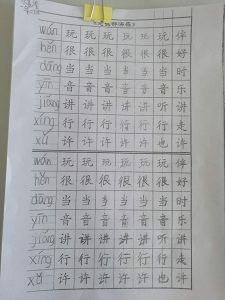 wán 玩 玩 玩 玩 玩 伴
hěn 很 很 很 很 很 好
dāng 当 当 当 当 当 时
yīn 音 音 音 音 音 乐
jiǎng 讲 讲 讲 讲 听 讲
xíng 行 行 行 行 行 走
xǔ 许 许 许 许 也 许
wán 玩 玩 玩 玩 玩 伴
hěn 很 很 很 很 很 好
dāng 当 当 当 当 当 时
yīn 音 音 音 音 音 乐
jiǎng 讲 讲 讲 讲 听 讲
xíng 行 行 行 行 行 走
xǔ 许 许 许 许 也 许